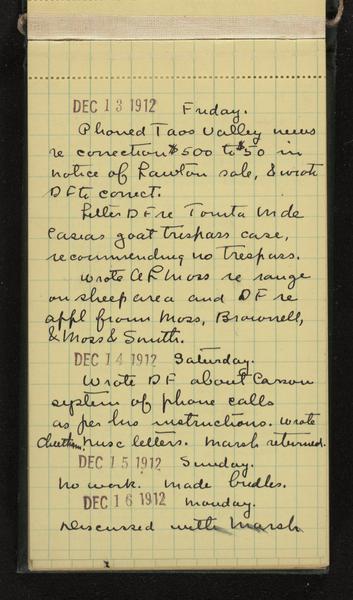 DEC 13 1912 Friday.
Phoned Taos Valley news
re correction $500 to $50 in
notice of Lawton sale, & wrote
DF to correct.
Letter DF re Tonita M de
Casias goat trespass case,
recommending no trespass.
Wrote A L Moss re range
on sheep area and DF re
appl from Moss, Brownell,
& Moss & Smith.
DEC 14 1912 Saturday.
Wrote DF about Carson
system of phone calls
as per his instructions. Wrote
misc letters. Marsh returned.
DEC 15 1912 Sunday.
No work. Made bridles.
DEC 16 1912 Monday.
Discussed with Marsh